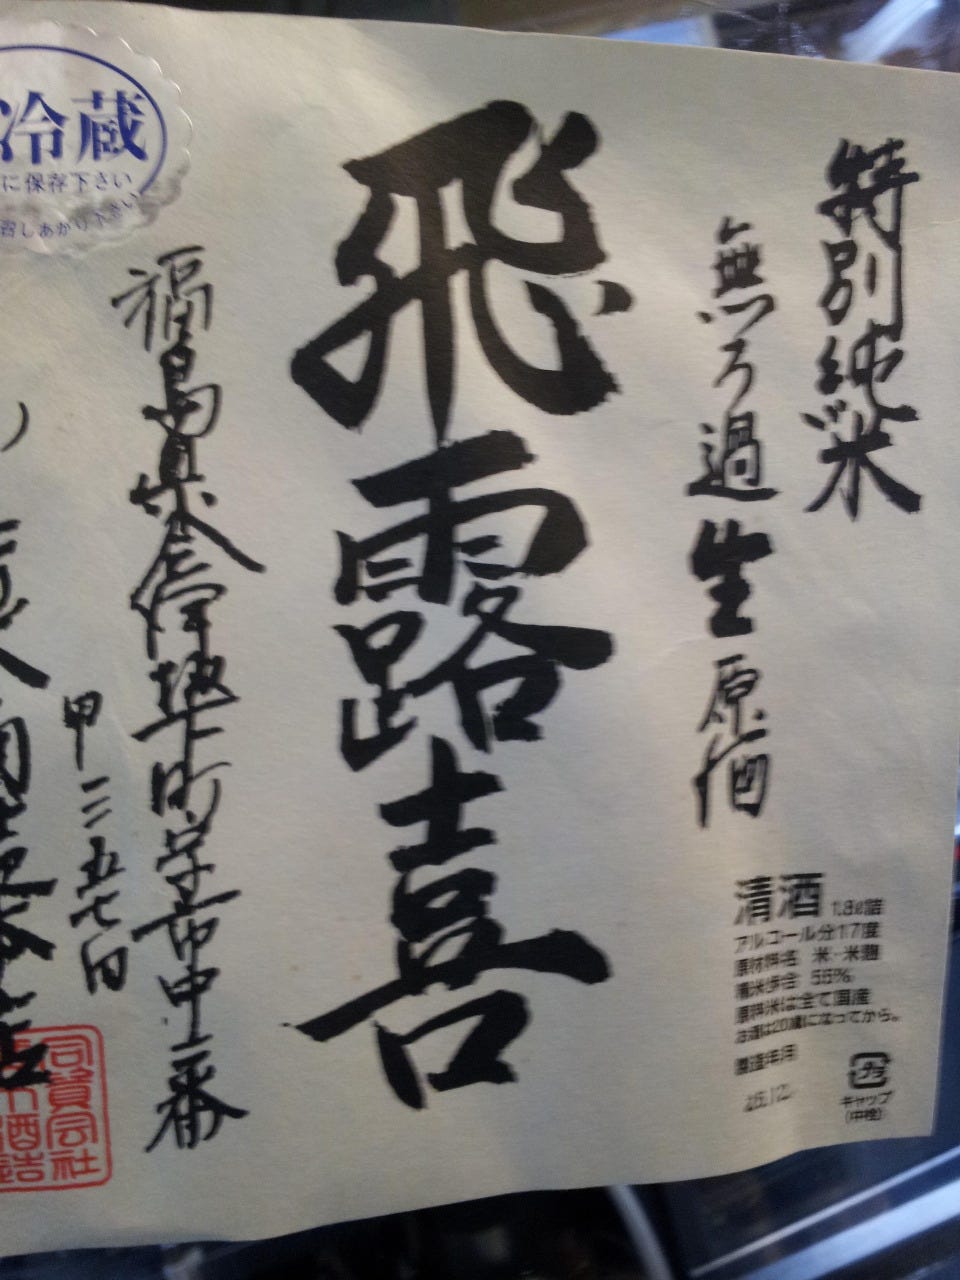 特別純米
無ろ過生原酒
飛露喜
福島県会津坂下町字市中一番
甲三五七四
冷蔵
に保存下さい
召しあがり下さい
清酒 1.8ℓ詰
アルコール分17度
原材料名 米・米麹
精米歩合 55%
原料米は全て国産
お酒は20歳になってから。
製造年月
キャップ
(中栓)
合資会社